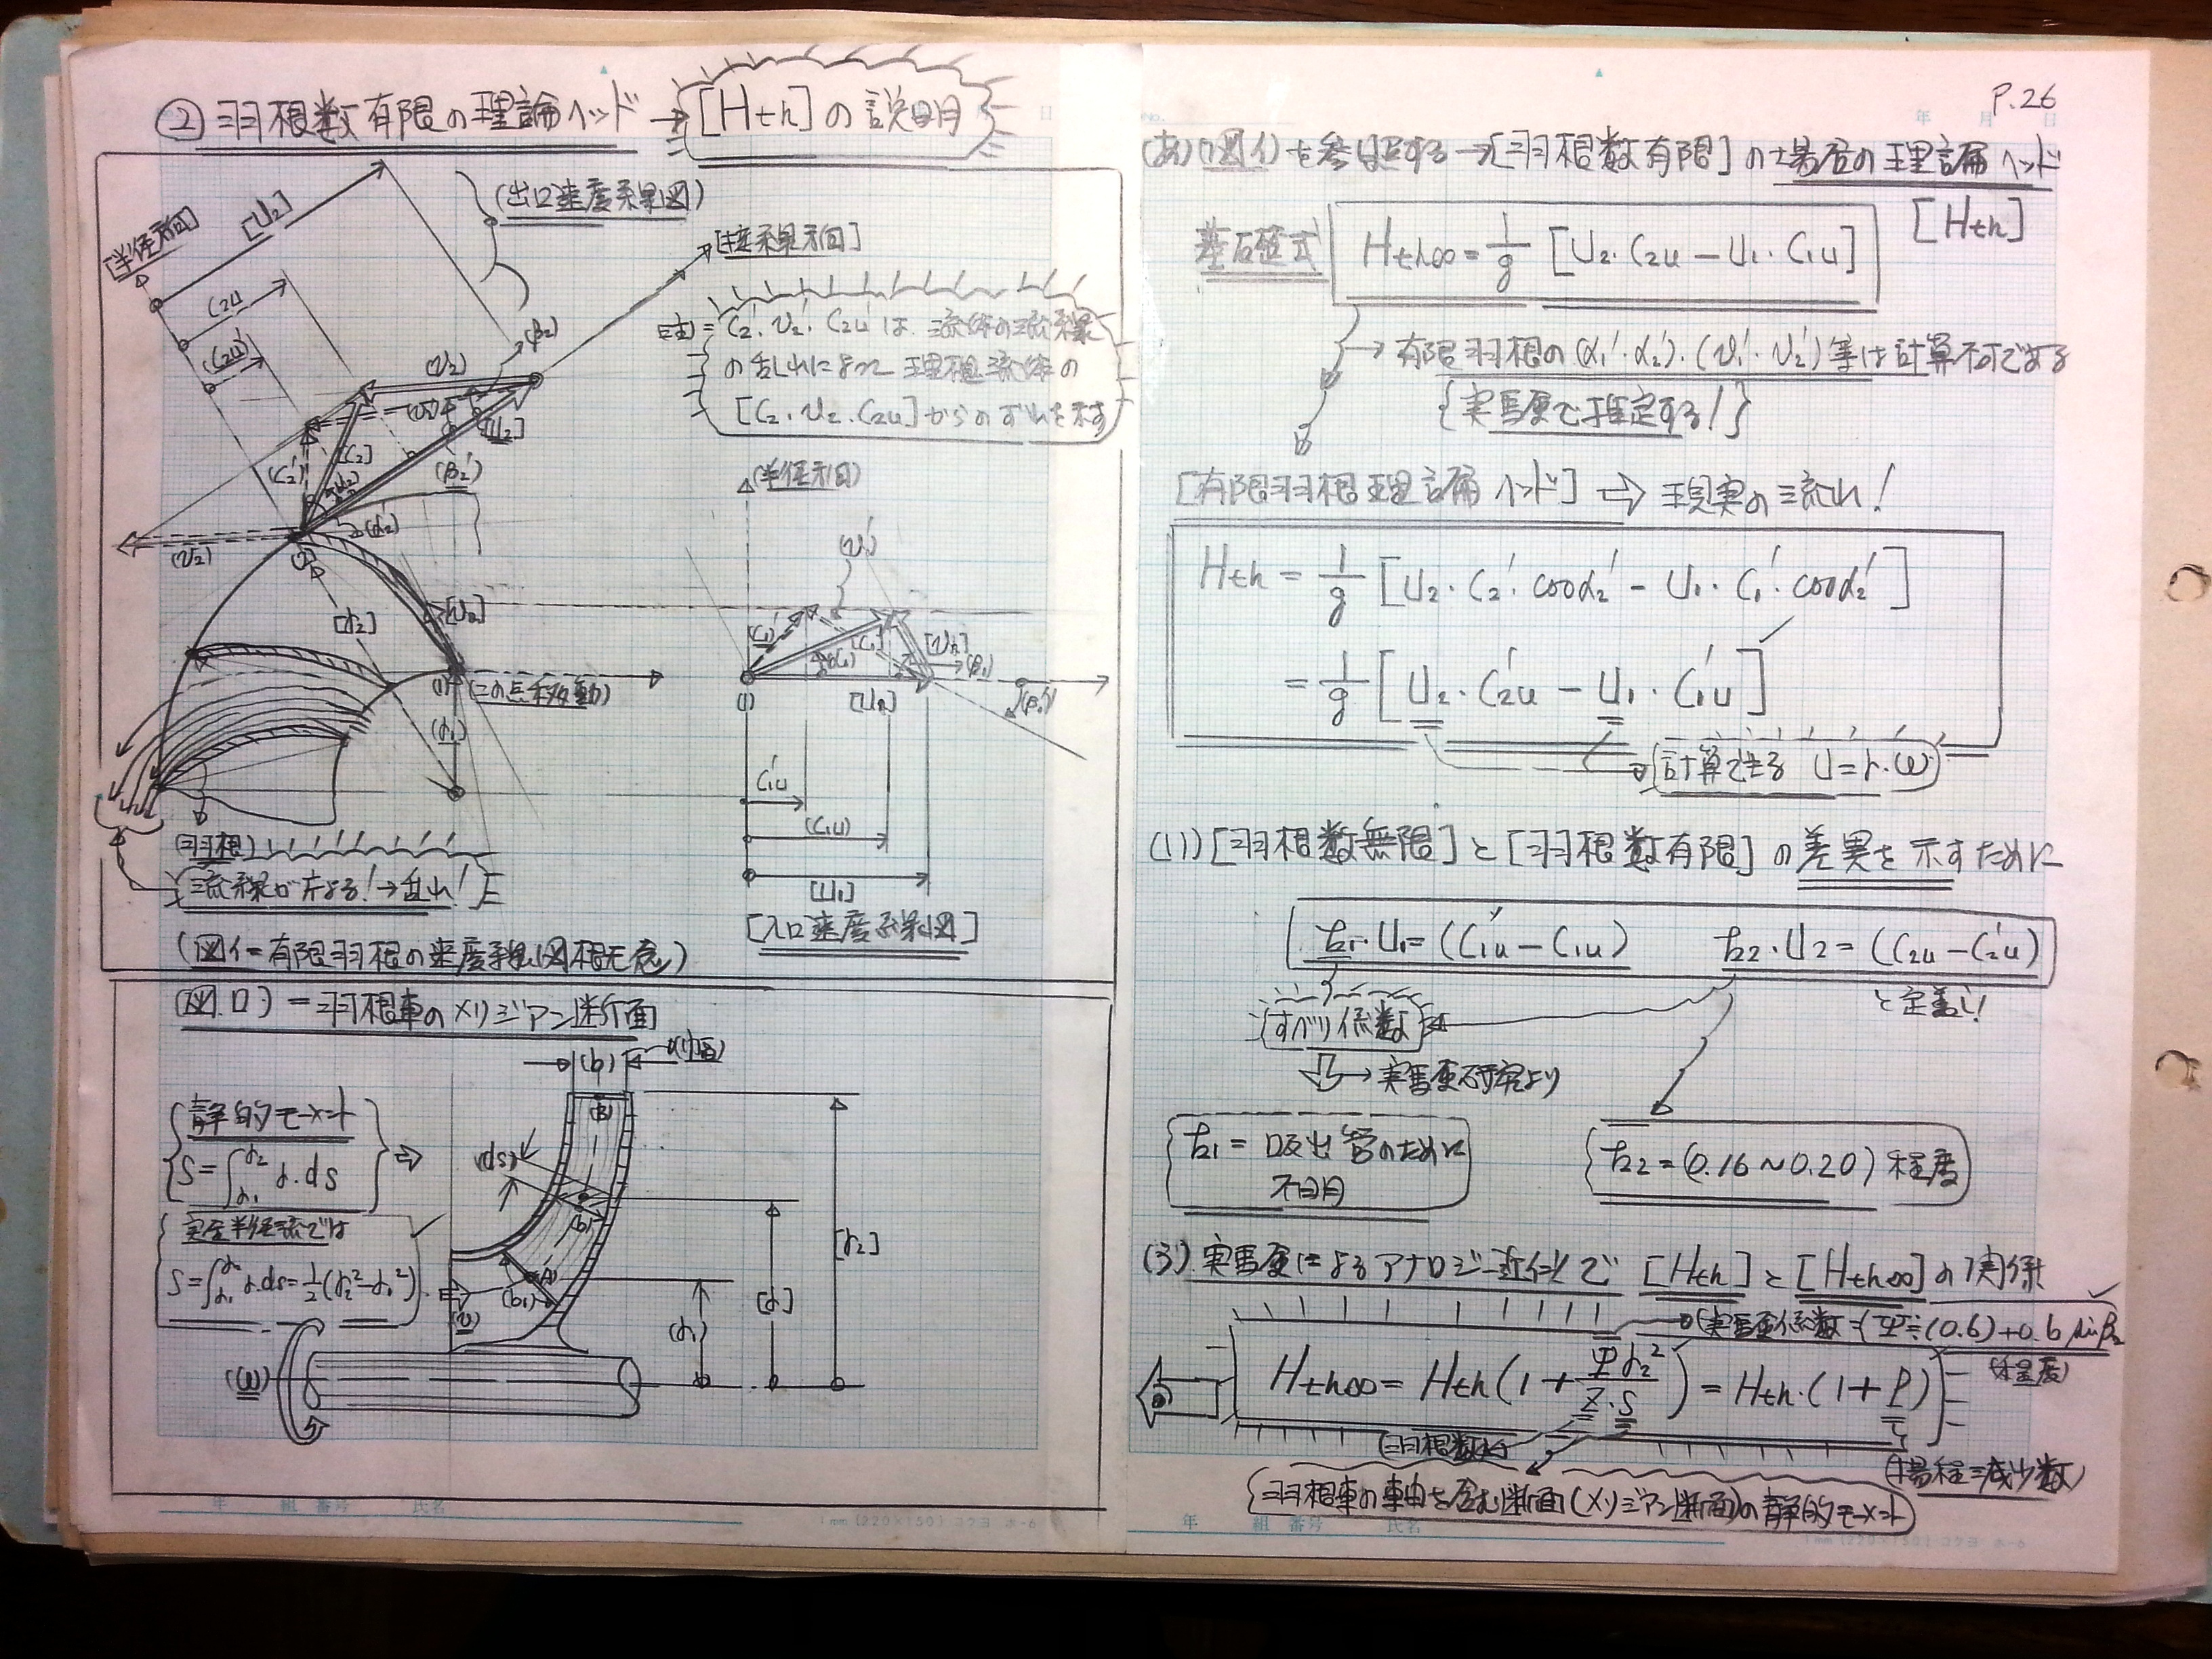 ② 羽根数有限の理論ヘッド → [Hth]の説明
(出口速度線図)
[半径方向]
[U2]
C2u
(C2u')
[接線方向]
(β2)
(V2)
[U2]
(C2')
[C2]
(β2')
(α2')
(V2)
注= C2'. V2'. C2u' は 流体の流線
の乱れによって 理想流体の
[C2. V2. C2u]からのずれを示す
(半径方向)
(V1')
(C1)'
[C1]
(β1)
(1)
[U1]
(β1')
[r2]
(1) (この点移動)
(r1)
C1u'
(C1u)
[U1]
[入口速度線図]
(羽根)
流線が片よる!→乱れ!
(図イ=有限羽根の速度線図概念)
(図.ロ) = 羽根車のメリジアン断面
(b) (幅)
(B)
静的モーメント
S=∫r1 r2 r.ds
(ds)
(b)
完全半径流では
S=∫r1 r2 r.ds=1/2(r2²-r1²)
(A)
(b1)
(v)
[r2]
[r]
(r1)
(ω)
P.26
(あ)(図イ)を参照する→[羽根数有限]の場合の理論ヘッド
[Hth]
基礎式 Hth∞=1/g [U2. C2u − U1. C1u]
→ 有限羽根の(α1'. α2'). (V1'. V2')等は計算不可である
{実験で推定する!}
[有限羽根理論ヘッド] ⇨ 現実の流れ!
Hth = 1/g [U2. C2'. cosα2' − U1. C1'. cosα2']
= 1/g [U2. C2u' − U1. C1u']
計算できる U=r.ω
(い)[羽根数無限]と[羽根数有限]の差異を示すために
k1. U1=(C1u'−C1u) k2. U2=(C2u−C2u')
と定義し!
すべり係数
→ 実験研究より
k1= 吸出管のために
不明
k2=(0.16~0.20)程度
(う). 実験によるアナロジー近似で [Hth]と[Hth∞]の関係
実験係数=(Ψ≒(0.6)+0.6 sinβ2
(程度)
Hth∞= Hth(1+Ψr2²/Z.S) = Hth.(1+P)
(羽根数)
(揚程減少数)
羽根車の軸を含む断面(メリジアン断面)の静的モーメント
年 組 番号 氏名
1mm (220×150) コクヨ ホ-6
年 組 番号 氏名
1mm (220×150) コクヨ ホ-6